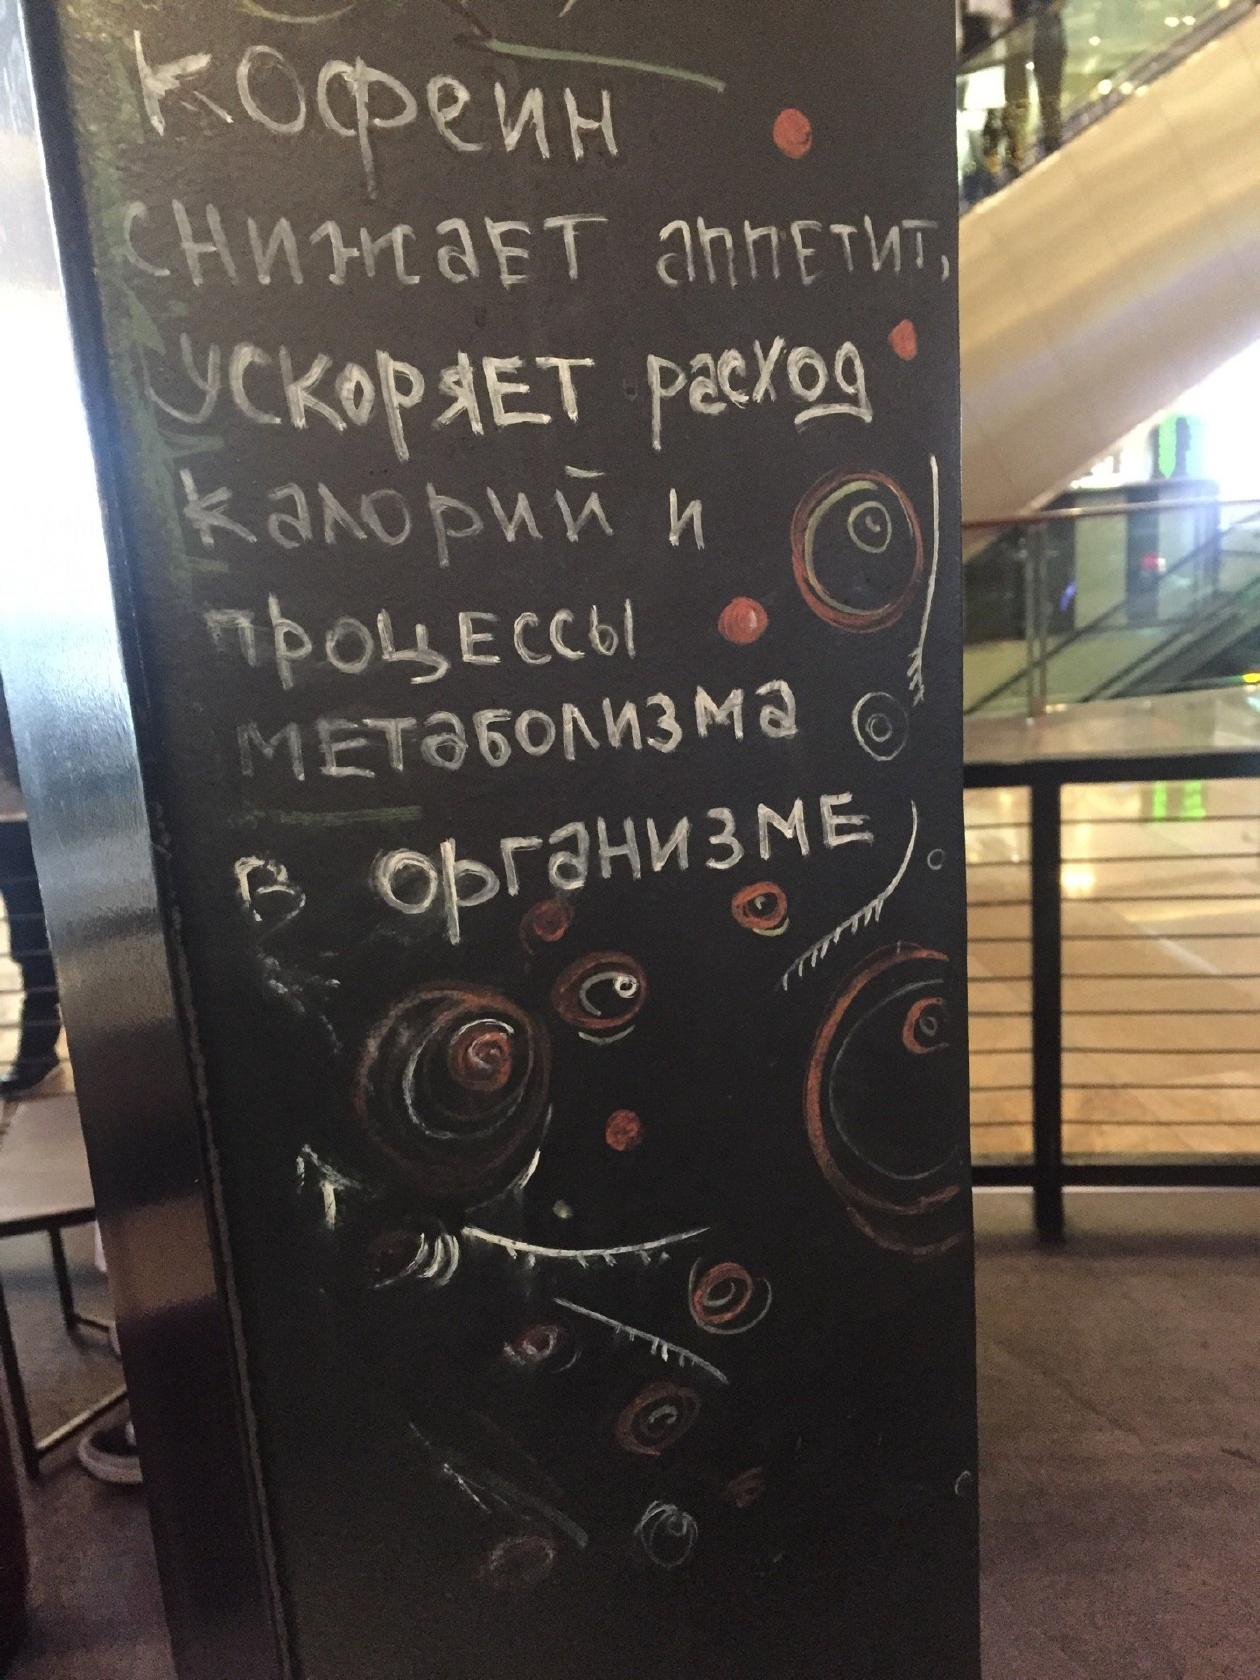 кофеин
снижает аппетит,
ускоряет расход
калорий и
процессы
метаболизма
в организме